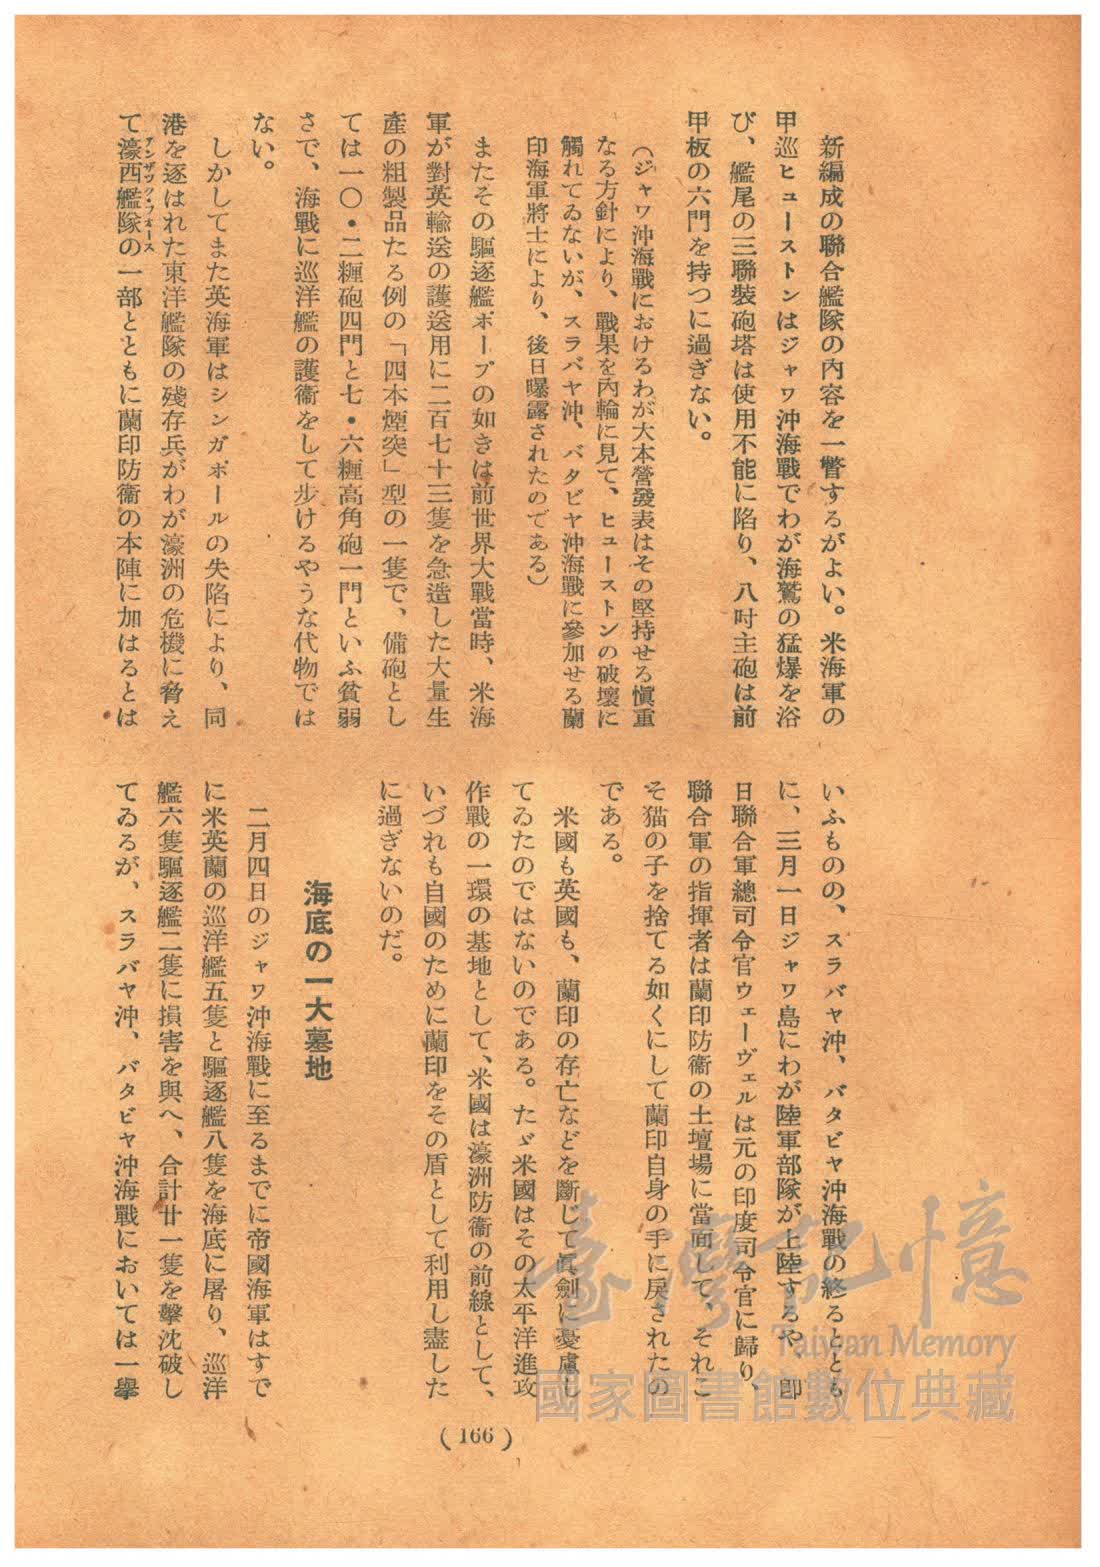 新編成の聯合艦隊の內容を一瞥するがよい。米海軍の
甲巡ヒューストンはジャワ沖海戰でわが海鷲の猛爆を浴
び、艦尾の三聯裝砲塔は使用不能に陷り、八吋主砲は前
甲板の六門を持つに過ぎない。
(ジャワ沖海戰におけるわが大本營發表はその堅持せる愼重
なる方針により、戰果を內輪に見て、ヒューストンの破壞に
觸れてゐないが、スラバヤ沖、バタビヤ沖海戰に參加せる蘭
印海軍將士により、後日曝露されたのである)
またその驅逐艦ポープの如きは前世界大戰當時、米海
軍が對英輸送の護送用に二百七十三隻を急造した大量生
產の粗製品たる例の「四本煙突」型の一隻で、備砲とし
ては一〇・二糎砲四門と七・六糎高角砲一門といふ貧弱
さで、海戰に巡洋艦の護衞をして步けるやうな代物では
ない。
しかしてまた英海軍はシンガポールの失陷により、同
港を逐はれた東洋艦隊の殘存兵がわが濠洲の危機に脅え
アンザック・フォース
て濠西艦隊の一部とともに蘭印防衞の本陣に加はるとは
いふものの、スラバヤ沖、バタビヤ沖海戰の終るととも
に、三月一日ジャワ島にわが陸軍部隊が上陸するや、卽
日聯合軍總司令官ウェーヴェルは元の印度司令官に歸り、
聯合軍の指揮者は蘭印防衞の土壇場に當面して、それこ
そ猫の子を捨てる如くにして蘭印自身の手に戾されたの
である。
米國も英國も、蘭印の存亡などを斷じて眞劍に憂慮し
てゐたのではないのである。たゞ米國はその太平洋進攻
作戰の一環の基地として、米國は濠洲防衞の前線として、
いづれも自國のために蘭印をその盾として利用し盡した
に過ぎないのだ。
海底の一大墓地
二月四日のジャワ沖海戰に至るまでに帝國海軍はすで
に米英蘭の巡洋艦五隻と驅逐艦八隻を海底に屠り、巡洋
艦六隻驅逐艦二隻に損害を與へ、合計廿一隻を擊沈破し
てゐるが、スラバヤ沖、バタビヤ沖海戰においては一擧
(166)
臺灣記憶
Taiwan Memory
國家圖書館數位典藏